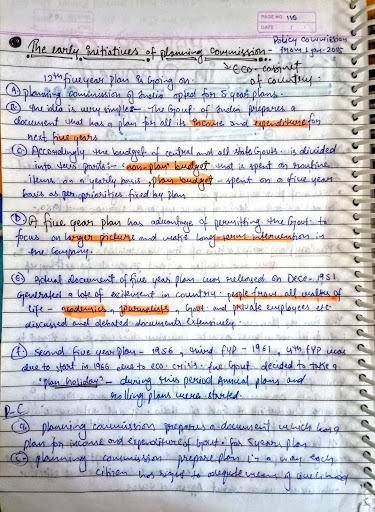 PAGE NO 110
DATE
Policy Commission
from 1 Jan. 2015
The early Initiatives of planning commission -
→ Eco-cabinet
of country.
12th five year plan is going on
(A) planning commission of India opted for 5 year plans.
(B) The idea is very simple - The Govt of India prepares a
document that has a plan for all its income and expenditure for
next five years
(C) Accordingly the budget of central and all state Govts. is divided
into two parts:- "non-plan" budget that is spent on routine
items on a yearly basis, plan budget - spent on a five year
basis as per priorities fixed by plan
(D) A five year plan has advantage of permitting the Govt. to
focus on larger picture and make long-term intervention in
the company.
(E) Actual document of five year plan was released on Dece-1951
Generated a lot of excitement in country. people from all walks of
life - academics, journalists, Govt and private employees etc
discussed and debated documents extensively.
(F) Second five year plan - 1956, third FYP - 1961, 4th FYP was
due to start in 1966 due to eco-crisis. the Govt decided to take a
"plan holiday" - during this period Annual plans and
rolling plans were started.
P.C.
planning commission prepares a document which has a
plan for income and expenditure of Govt. for 5 years plan
planning commission prepare plan in a way each
citizen has right to adequate means of livelihood